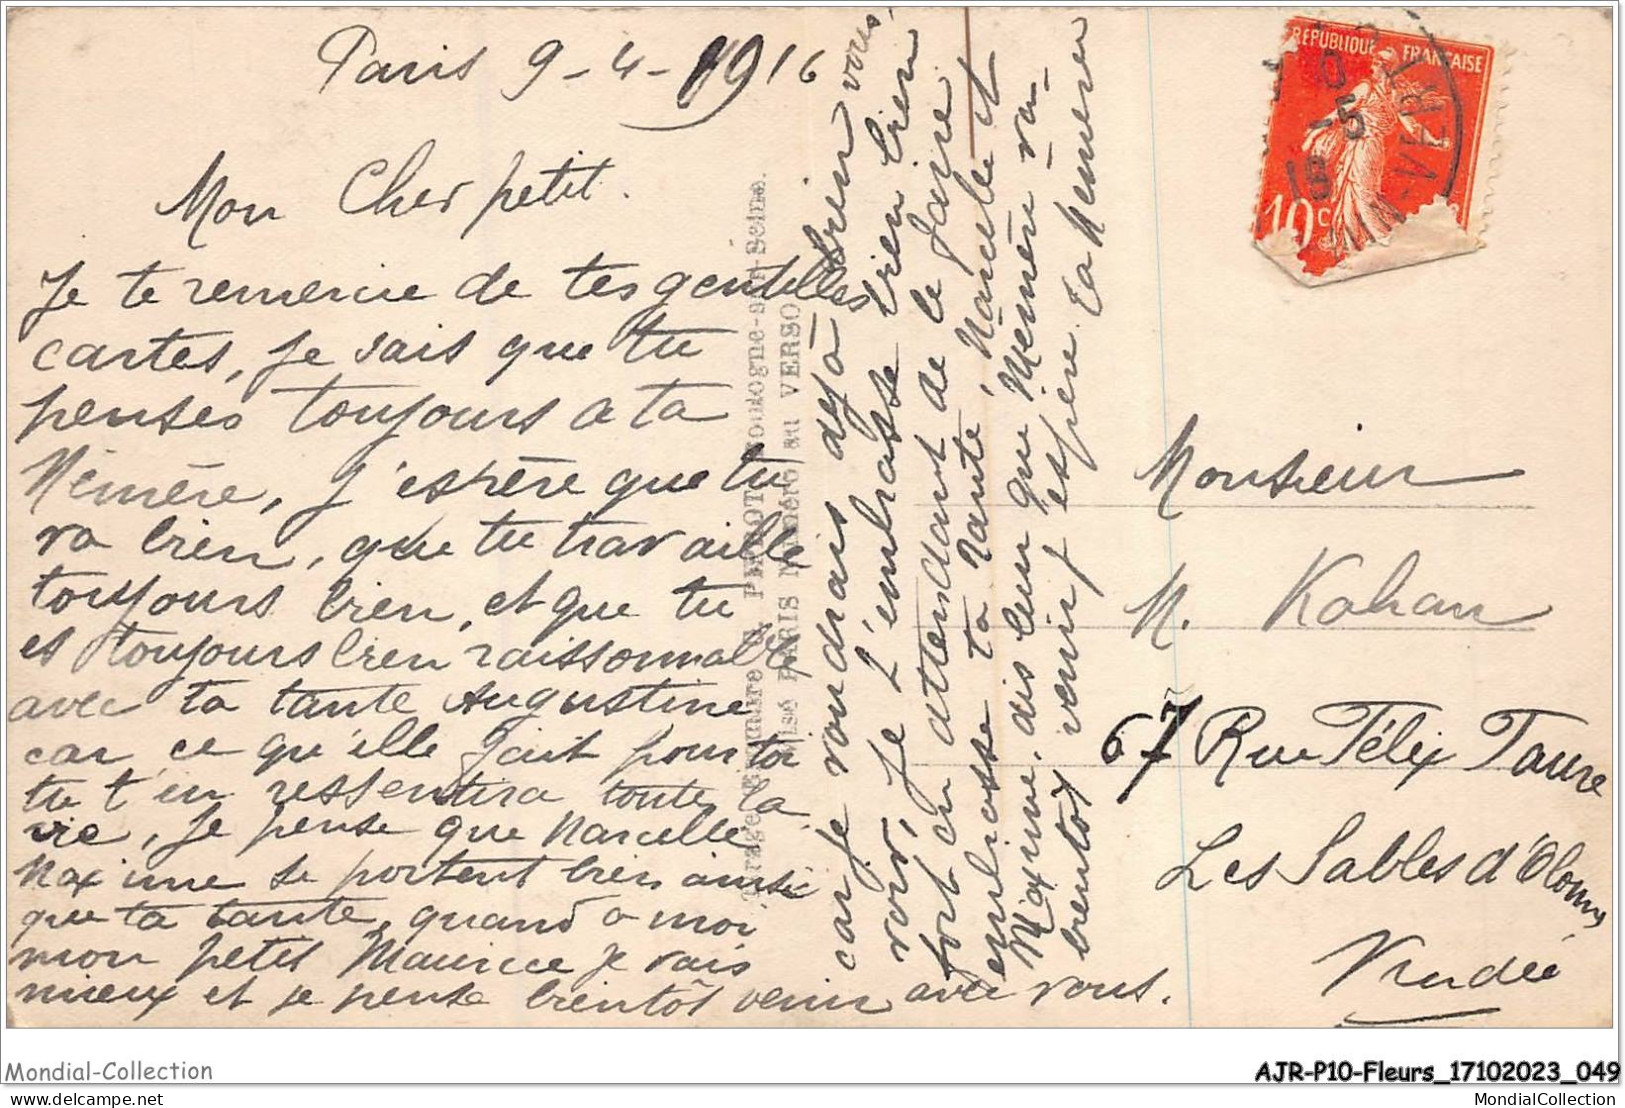 Paris 9-4-1916
Mon Cher petit.
Je te remercie de tes gentilles
cartes, je sais que tu
penses toujours a ta
Mémère, j'espère que tu
va bien, que tu travaille
toujours bien, et que tu
es toujours bien raissonnable
avec ta tante Augustine
car ce qu'elle fait pour toi
tu t'en ressentira toute la
vie, je pense que Marcelle
Maxime se portent bien ainsi
que ta tante, quand a moi
mon petit Maurice je vais
mieux et je pense bientôt venir avec vous.
car je voudrais déjà bien vous
voir, je t'embrasse bien bien
fort en attendant de le faire
embrasse ta tante, Marcelle et
Maxime, dis leur que Mémère va
bientôt venir j'espère. ta Mémère
Boulogne-sur-Seine.
PARIS Numéro au VERSO
RÉPUBLIQUE FRANÇAISE
10c
Monsieur
M. Kahan
67 Rue Félix Faure
Les Sables d'Olonne
Vendée
Mondial-Collection
AJR-P10-Fleurs_17102023_049
MondialCollection